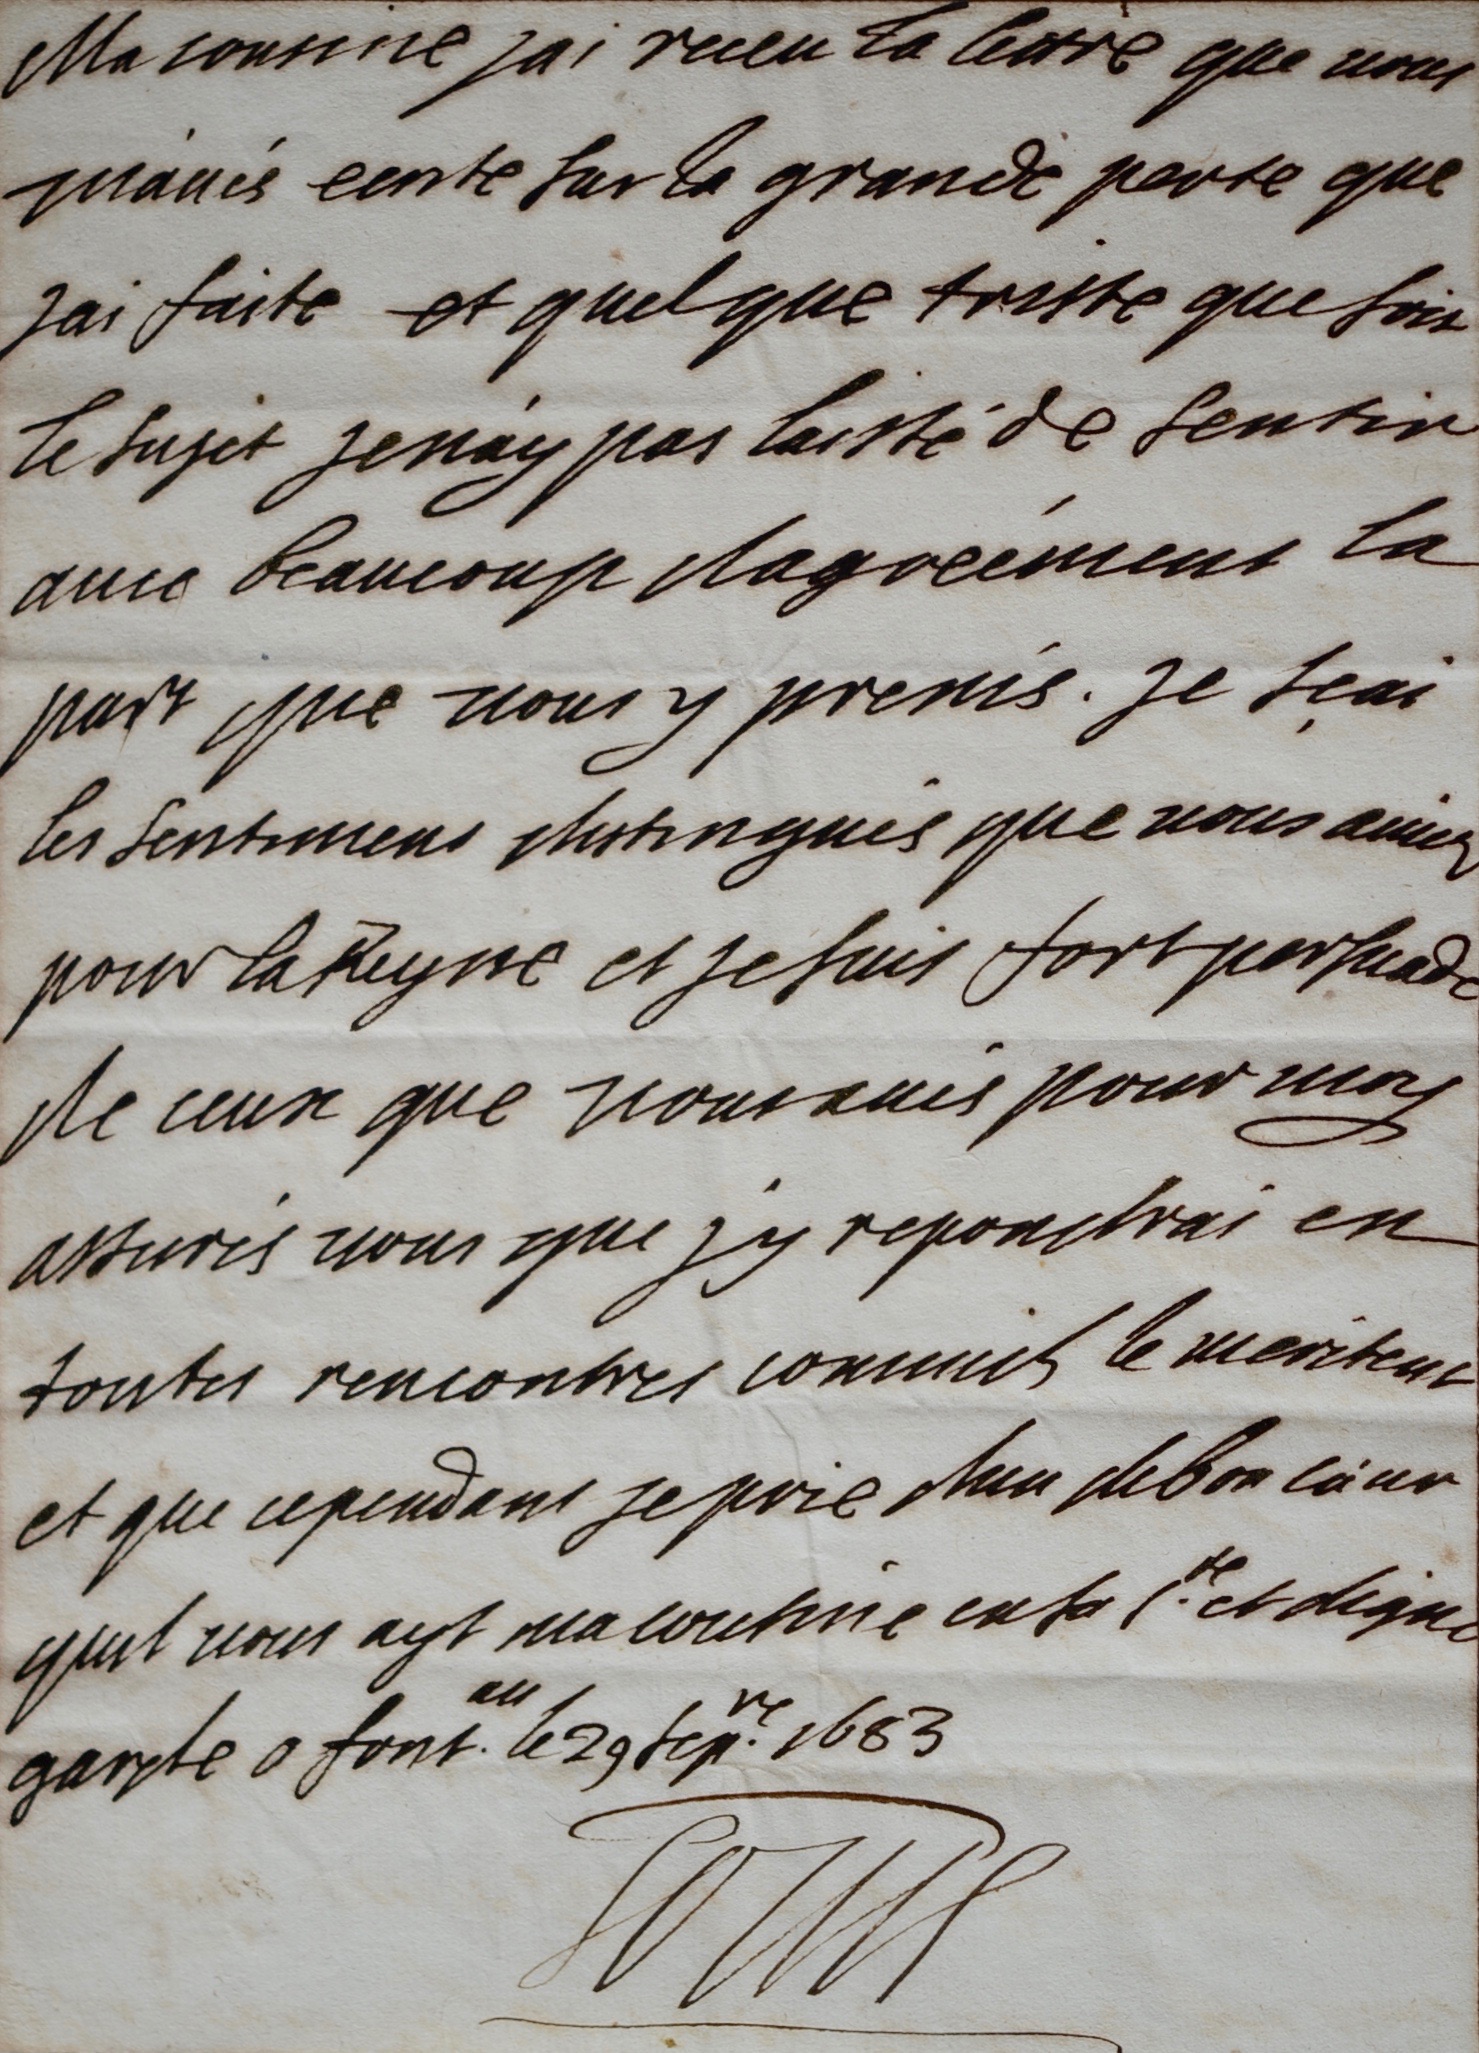 Ma cousine jai receu la lettre que vous
m'avés ecrite sur la grande perte que
jai faite et quelque triste que soit
le sujet je n'ay pas laissé de sentir
avec beaucoup dagreément la
part que vous y prenés. je sçai
les sentimens distingués que vous aviez
pour la Reyne et je suis fort persuadé
de ceux que vous avés pour moy
assurés vous que j'y repondrai en
toutes rencontres comme ils le meritent
et que cependant je prie dieu de bon cœur
quil vous ayt ma cousine en sa s.te et digne
garde a font.au le 29 sep.re 1683
Louis